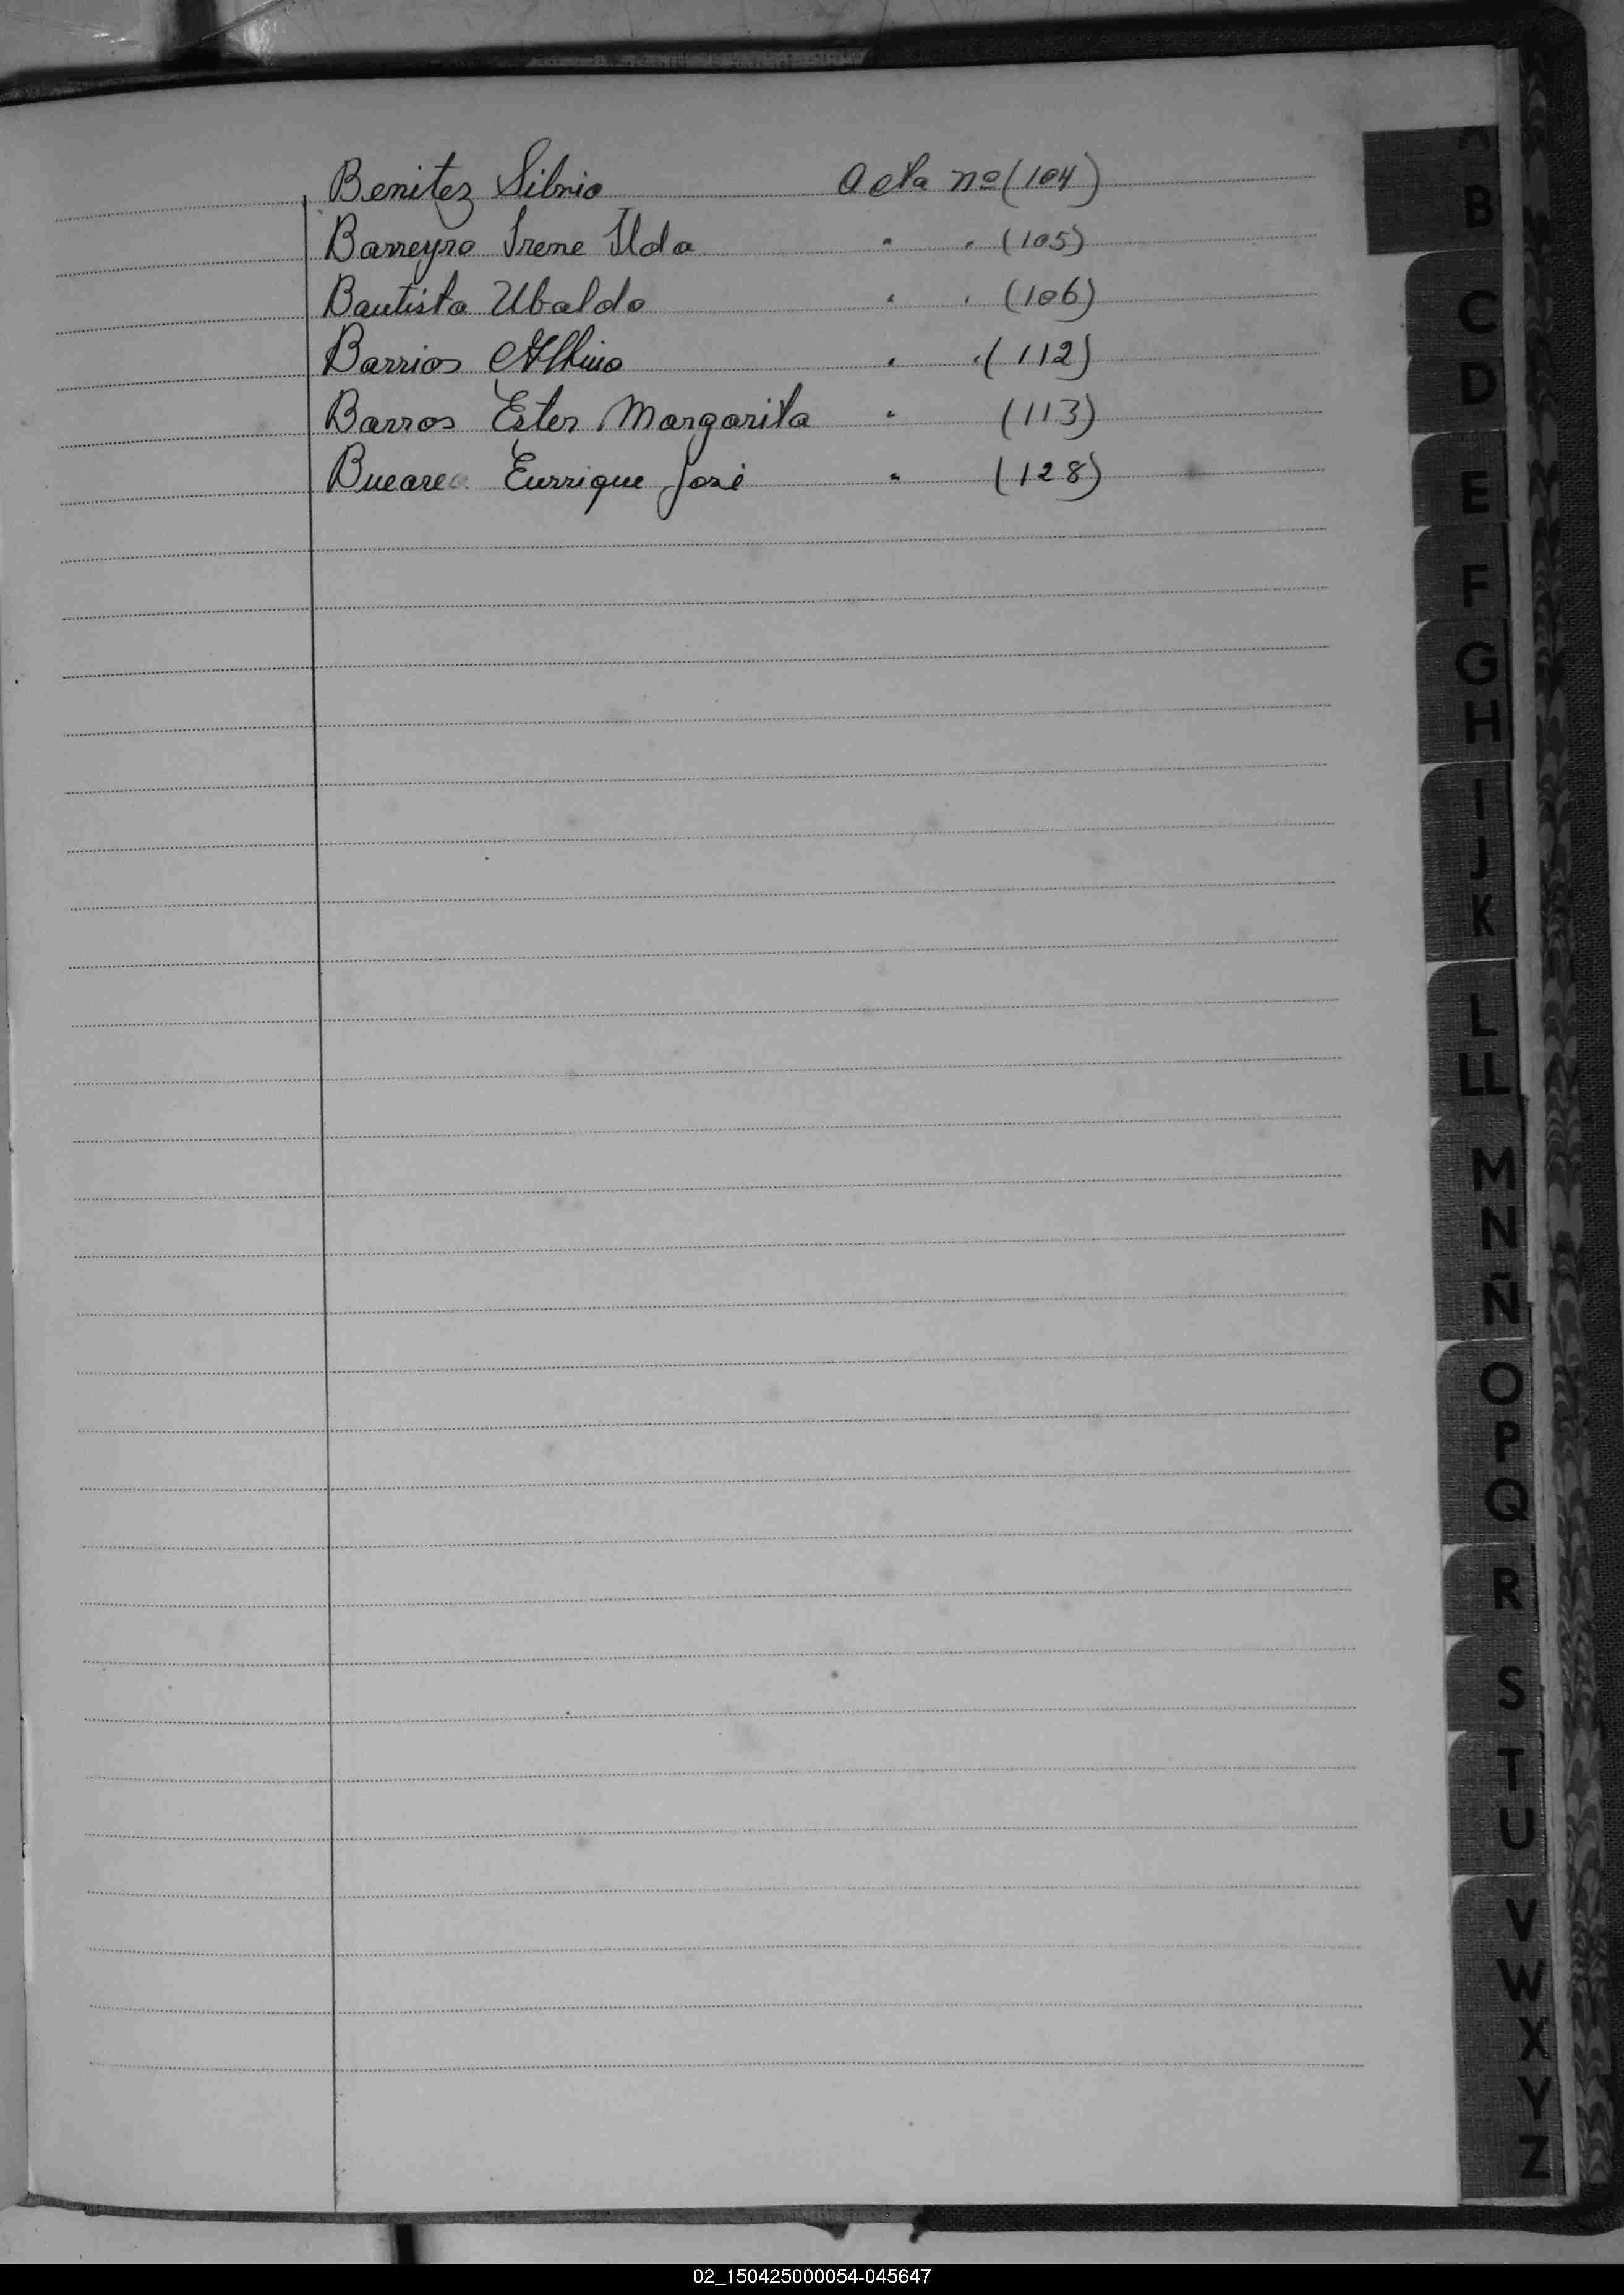 Benitez Silvio Acta nº (104)
Barreyro Irene Ilda " " (105)
Bautista Ubaldo " " (106)
Barrios Albino " " (112)
Barros Ester Margarita " (113)
Enrrique José " (128)
B
C
D
E
F
G
H
I
J
K
L
LL
M
N
Ñ
O
P
Q
R
S
T
U
V
W
X
Y
Z
02_150425000054-045647